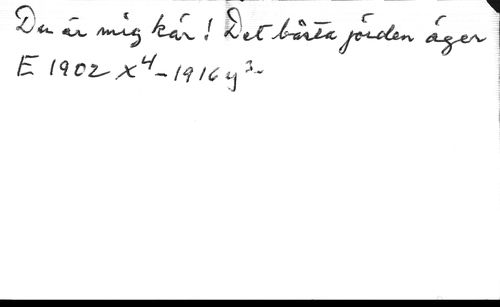 Du är mig kär! Det bästa jorden äger
E 1902 x⁴ - 1916 y³-